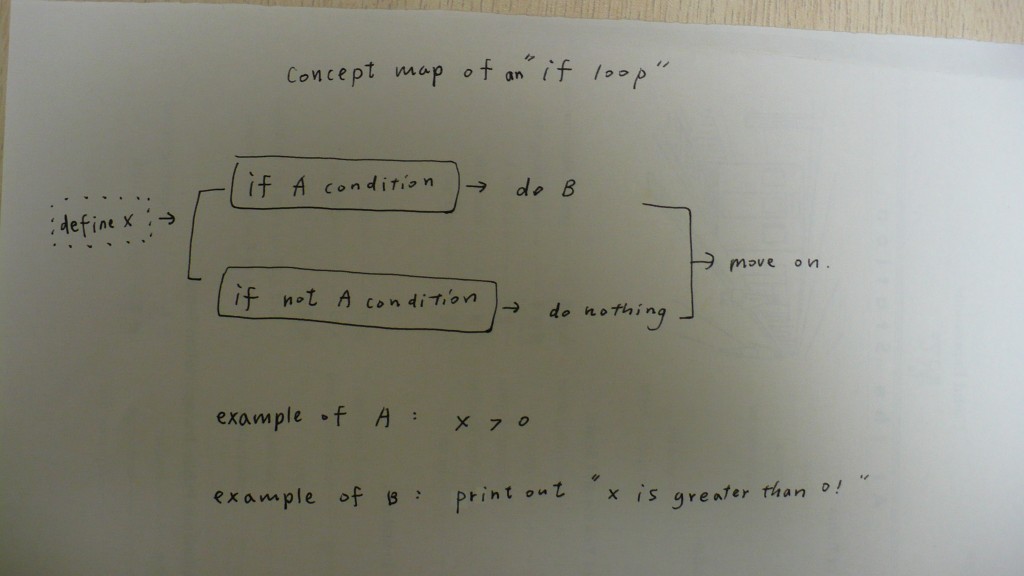 Concept map of an "if loop"
define X → if A condition → do B
if not A condition → do nothing
→ move on.
example of A : x > 0
example of B : print out "x is greater than 0! "